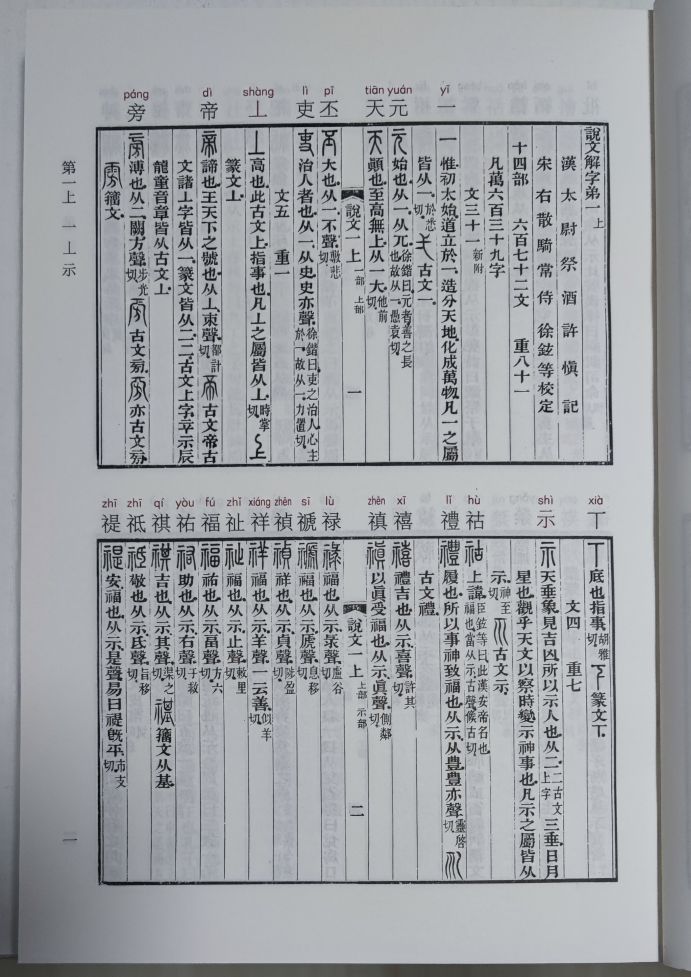 yī
一
yuán
元
tiān
天
pī
丕
lì
吏
shàng
丄
dì
帝
páng
旁
說文解字弟一 上
漢太尉祭酒許愼記
宋右散騎常侍徐鉉等校定
十四部 六百七十二文 重八十一
凡萬六百三十九字
文三十一 新附
一 惟初太始道立於一造分天地化成萬物凡一之屬
皆从一 於悉切 弌 古文一
元 始也从一从兀 徐鍇曰元者善之長也故从一愚袁切
天 顚也至高無上从一大 他前切
說文一上 一部 上部 一
丕 大也从一不聲 敷悲切
吏 治人者也从一从史史亦聲 徐鍇曰吏之治人心主於一故从一力置切
文五 重一
丄 高也此古文上指事也凡丄之屬皆从丄 時掌切 上
篆文丄
帝 諦也王天下之號也从丄朿聲 都計切 古文帝古
文諸丄字皆从一篆文皆从二二古文上字䇂示辰
龍童音章皆从古文丄
旁 溥也从二闕方聲 步光切 古文㫄 亦古文㫄
籒文
第一上 一丄示
xià
丅
shì
示
hù
祜
lǐ
禮
xǐ
禧
zhēn
禛
lù
禄
sī
禠
zhēn
禎
xiáng
祥
zhǐ
祉
fú
福
yòu
祐
qí
祺
zhī
祗
zhī
禔
丅 底也指事 胡雅切 篆文丅
文四 重七
示 天垂象見吉凶所以示人也从二 二古文上字 三垂日月
星也觀乎天文以察時變示神事也凡示之屬皆从
示 神至切 古文示
祜 上諱 臣鉉等曰此漢安帝名也福也當从示古聲候古切
禮 履也所以事神致福也从示从豊豊亦聲 靈啓切
古文禮
禧 禮吉也从示喜聲 許其切
禛 以眞受福也从示眞聲 側鄰切
說文一上 上部 示部 二
祿 福也从示彔聲 盧谷切
禠 福也从示虒聲 息移切
禎 祥也从示貞聲 陟盈切
祥 福也从示羊聲一云善 似羊切
祉 福也从示止聲 敕里切
福 祐也从示畐聲 方六切
祐 助也从示右聲 于救切
祺 吉也从示其聲 渠之切 籒文从基
祗 敬也从示氐聲 旨移切
禔 安福也从示是聲易曰禔旣平 市支切
一